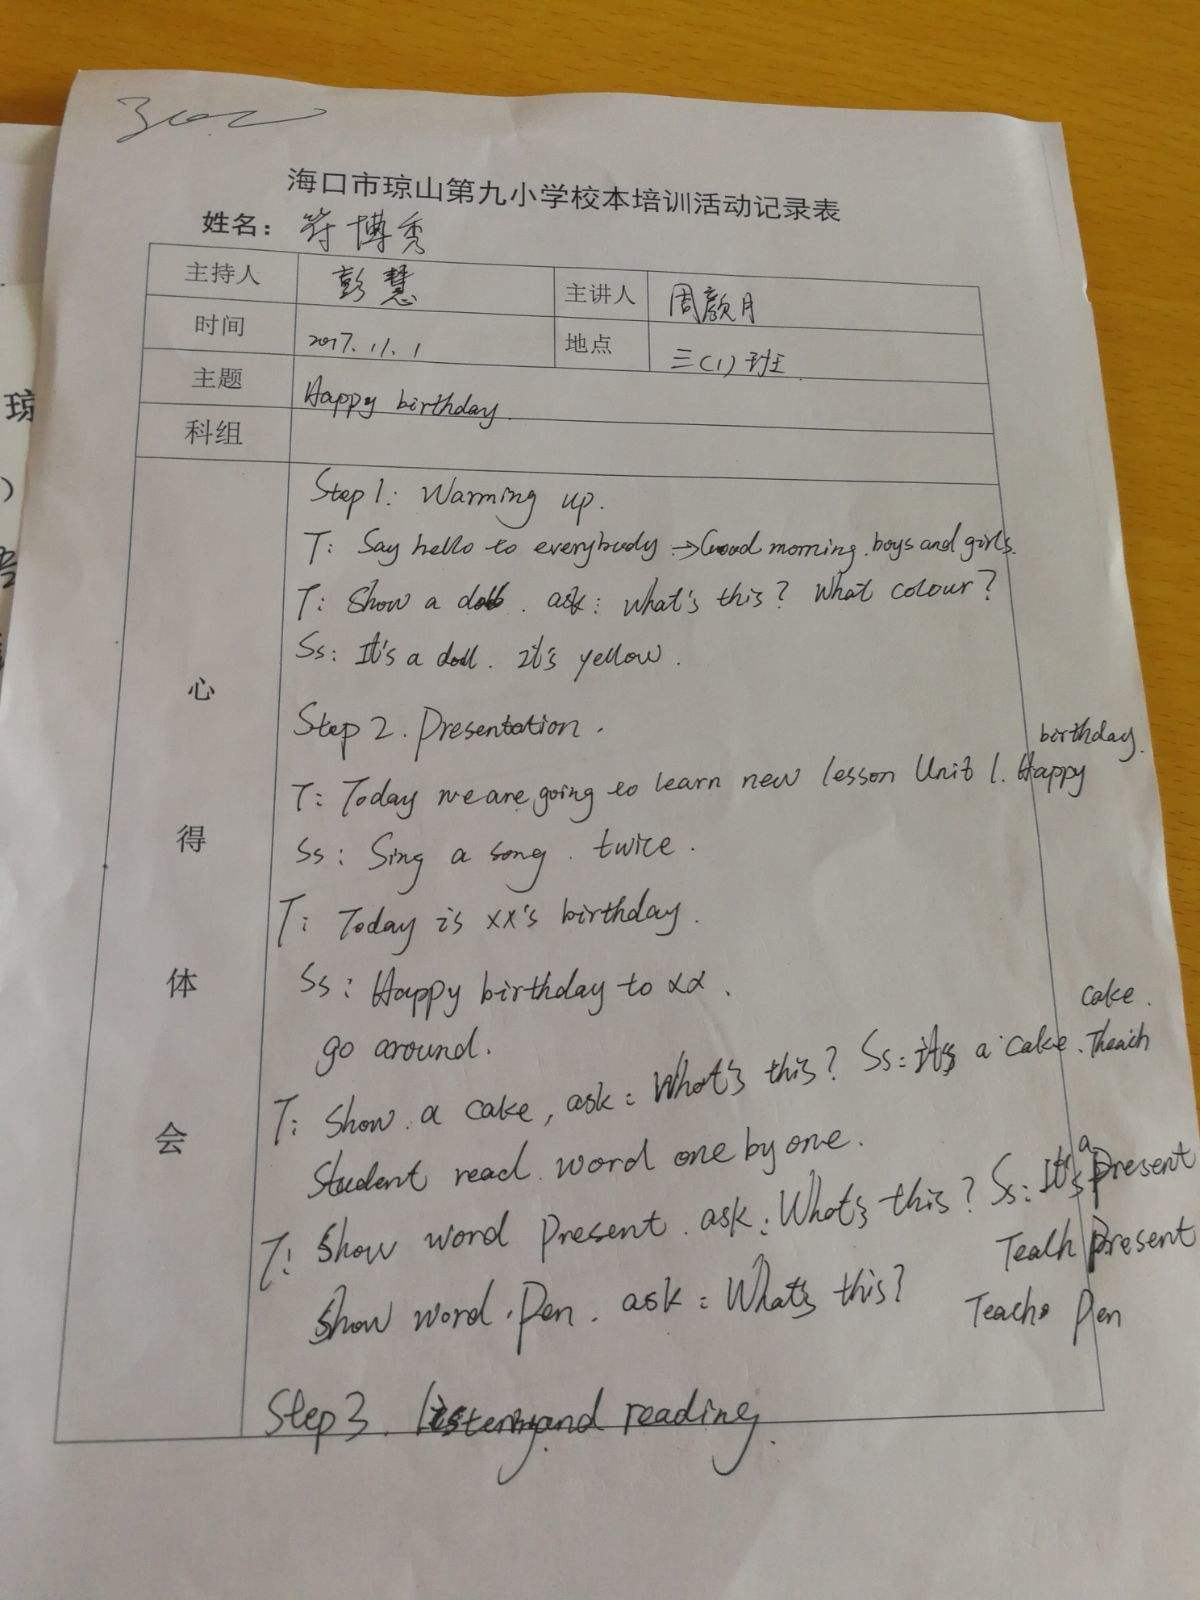 海口市琼山第九小学校本培训活动记录表
姓名：符博秀
主持人 彭慧 主讲人 周颜月
时间 2017.11.1 地点 三(1)班
主题 Happy birthday.
科组
心得体会
Step 1: Warming up.
T: Say hello to everybody → Good morning. boys and girls.
T: Show a doll. ask: what's this? What colour?
Ss: It's a doll. It's yellow.
Step 2. Presentation.
T: Today we are going to learn new lesson Unit 1. Happy birthday.
Ss: Sing a song. twice.
T: Today is xx's birthday.
Ss: Happy birthday to xx.
go around.
T: Show a cake, ask: What's this? Ss: it's a cake. Theach cake.
Student read word one by one.
T: Show word Present. ask: What's this? Ss: It's a present
Teach present
Show word. Pen. ask: What's this? Teach Pen
Step 3. listening and reading.
琼
）